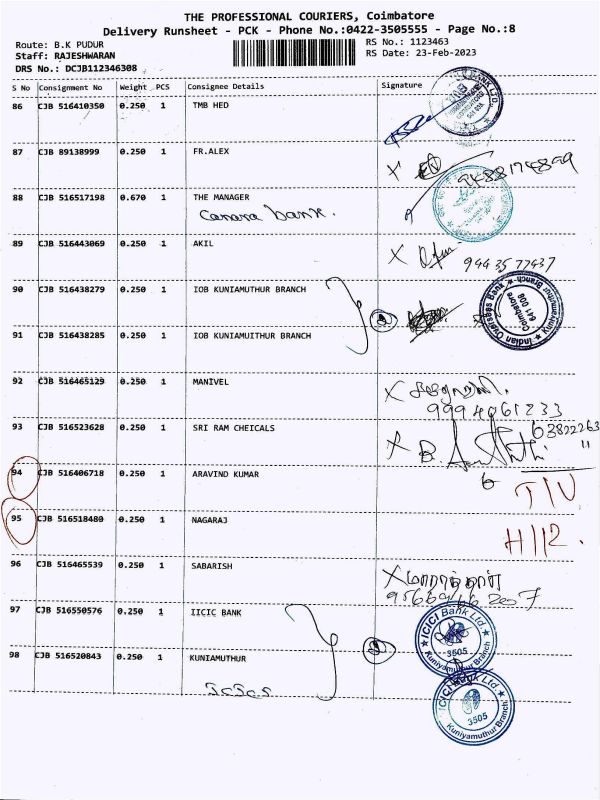 THE PROFESSIONAL COURIERS, Coimbatore
Delivery Runsheet - PCK - Phone No.:0422-3505555 - Page No.:8
Route: B.K PUDUR
RS No.: 1123463
Staff: RAJESHWARAN
RS Date: 23-Feb-2023
DRS No.: DCJB112346308
S No Consignment No Weight PCS Consignee Details Signature
86 CJB 516410350 0.250 1 TMB HED
87 CJB 89138999 0.250 1 FR.ALEX X
88 CJB 516517198 0.670 1 THE MANAGER
Canara bank.
89 CJB 516443069 0.250 1 AKIL X
9943577437
90 CJB 516438279 0.250 1 IOB KUNIAMUTHUR BRANCH
Indian Overseas Bank * Kuniyamuthur Branch *
Coimbatore
641 008
91 CJB 516438285 0.250 1 IOB KUNIAMUITHUR BRANCH
92 CJB 516465129 0.250 1 MANIVEL X
9994061233
93 CJB 516523628 0.250 1 SRI RAM CHEICALS X B.
63822263
94 CJB 516406718 0.250 1 ARAVIND KUMAR
95 CJB 516518480 0.250 1 NAGARAJ
96 CJB 516465539 0.250 1 SABARISH X
97 CJB 516550576 0.250 1 IICIC BANK
ICICI Bank Ltd.
3505
Kuniyamuthur Branch
98 CJB 516520843 0.250 1 KUNIAMUTHUR
ICICI Bank Ltd.
3505
Kuniyamuthur Branch